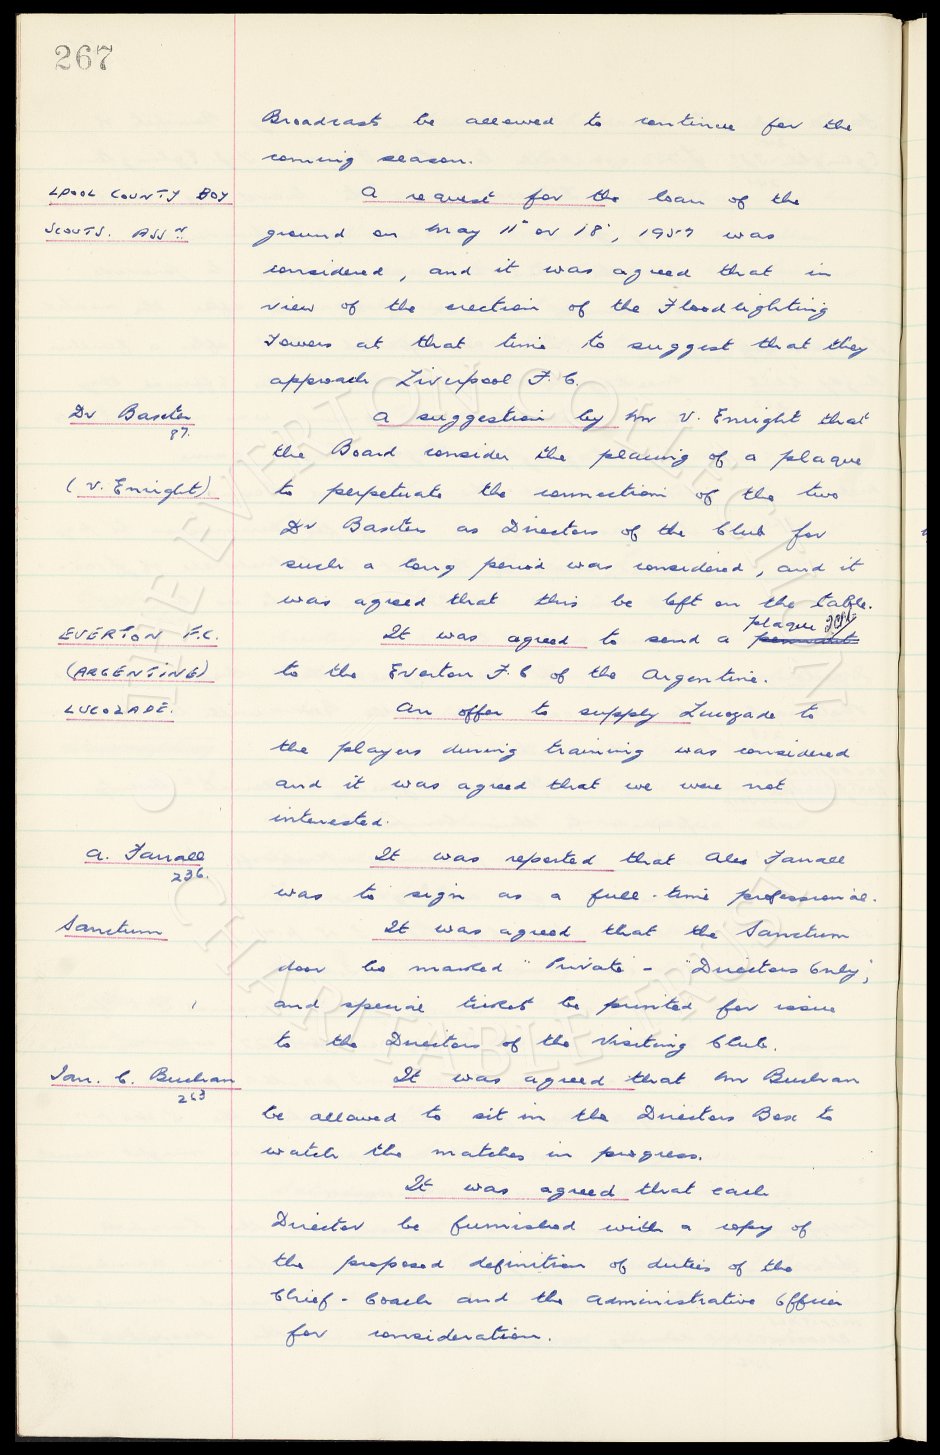 267
Broadcasts be allowed to continue for the
coming season.
LPOOL COUNTY BOY
SCOUTS. ASSN
A request for the loan of the
ground on May 11" or 18", 1957 was
considered, and it was agreed that in
view of the erection of the Floodlighting
Towers at that time to suggest that they
approach Liverpool F.C.
Dr Baxter
87.
(V. Enright)
A suggestion by Mr V. Enright that
the Board consider the placing of a plaque
to perpetuate the connection of the two
Dr Baxters as Directors of the Club for
such a long period was considered, and it
was agreed that this be left on the table.
EVERTON F.C.
(ARGENTINE)
plaque
It was agreed to send a pennant
to the Everton F.C of the Argentine.
LUCOZADE.
An offer to supply Lucozade to
the players during training was considered
and it was agreed that we were not
interested.
A. Farrall
236.
It was reported that Alec Farrall
was to sign as a full-time professional.
Sanctum
It was agreed that the Sanctum
door be marked "Private - "Directors Only",
and special ticket be printed for issue
to the Directors of the Visiting Club.
Ian. C. Buchan
263
It was agreed that Mr Buchan
be allowed to sit in the Directors Box to
watch the matches in progress.
It was agreed that each
Director be furnished with a copy of
the proposed definition of duties of the
Chief-Coach and the Administrative Officer
for consideration.
THE EVERTON COLLECTION
CHARITABLE TRUST